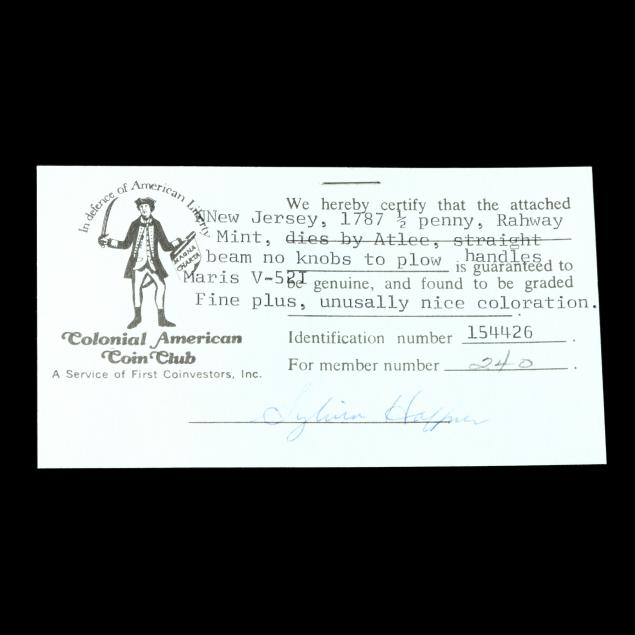 In defence of American Liberty
MAGNA
CHARTA
Colonial American
Coin Club
A Service of First Coinvestors, Inc.
We hereby certify that the attached
New Jersey, 1787 ½ penny, Rahway
Mint, dies by Atlee, straight
beam no knobs to plow handles
is guaranteed to
Maris V-52I
be genuine, and found to be graded
Fine plus, unusally nice coloration.
Identification number 154426.
For member number 240.
Sylvia Haffner